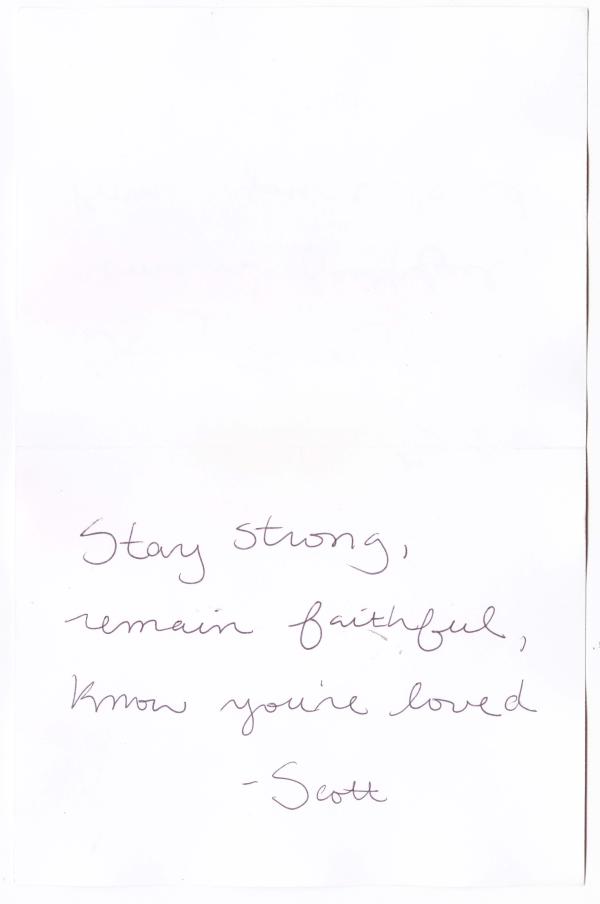 Stay strong,
remain faithful,
Know you're loved
-Scott